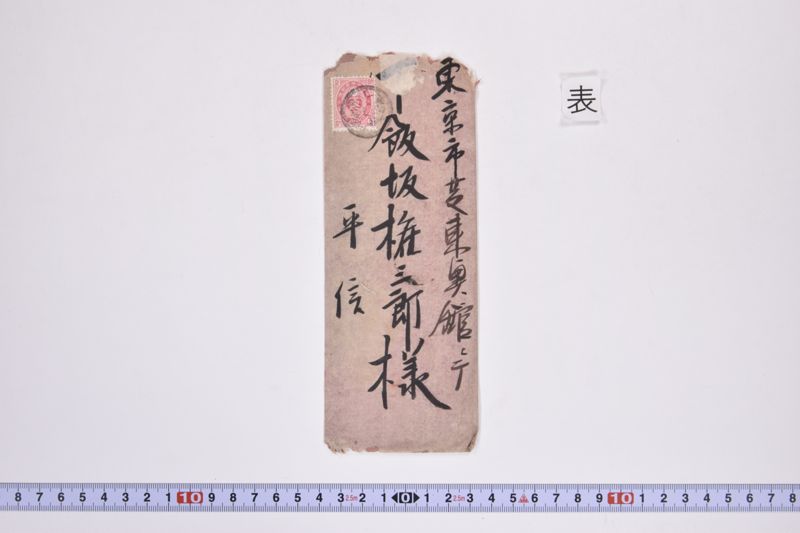 表
東京市芝東奥舘ニテ
飯坂権三郎様
平信
8 7 6 5 4 3 2 1 10 9 8 7 6 5 4 3 2.5m 2 1 0 1 2 2.5m 3 4 5 6 7 8 9 10 1 2 3 4 5 6 7 8